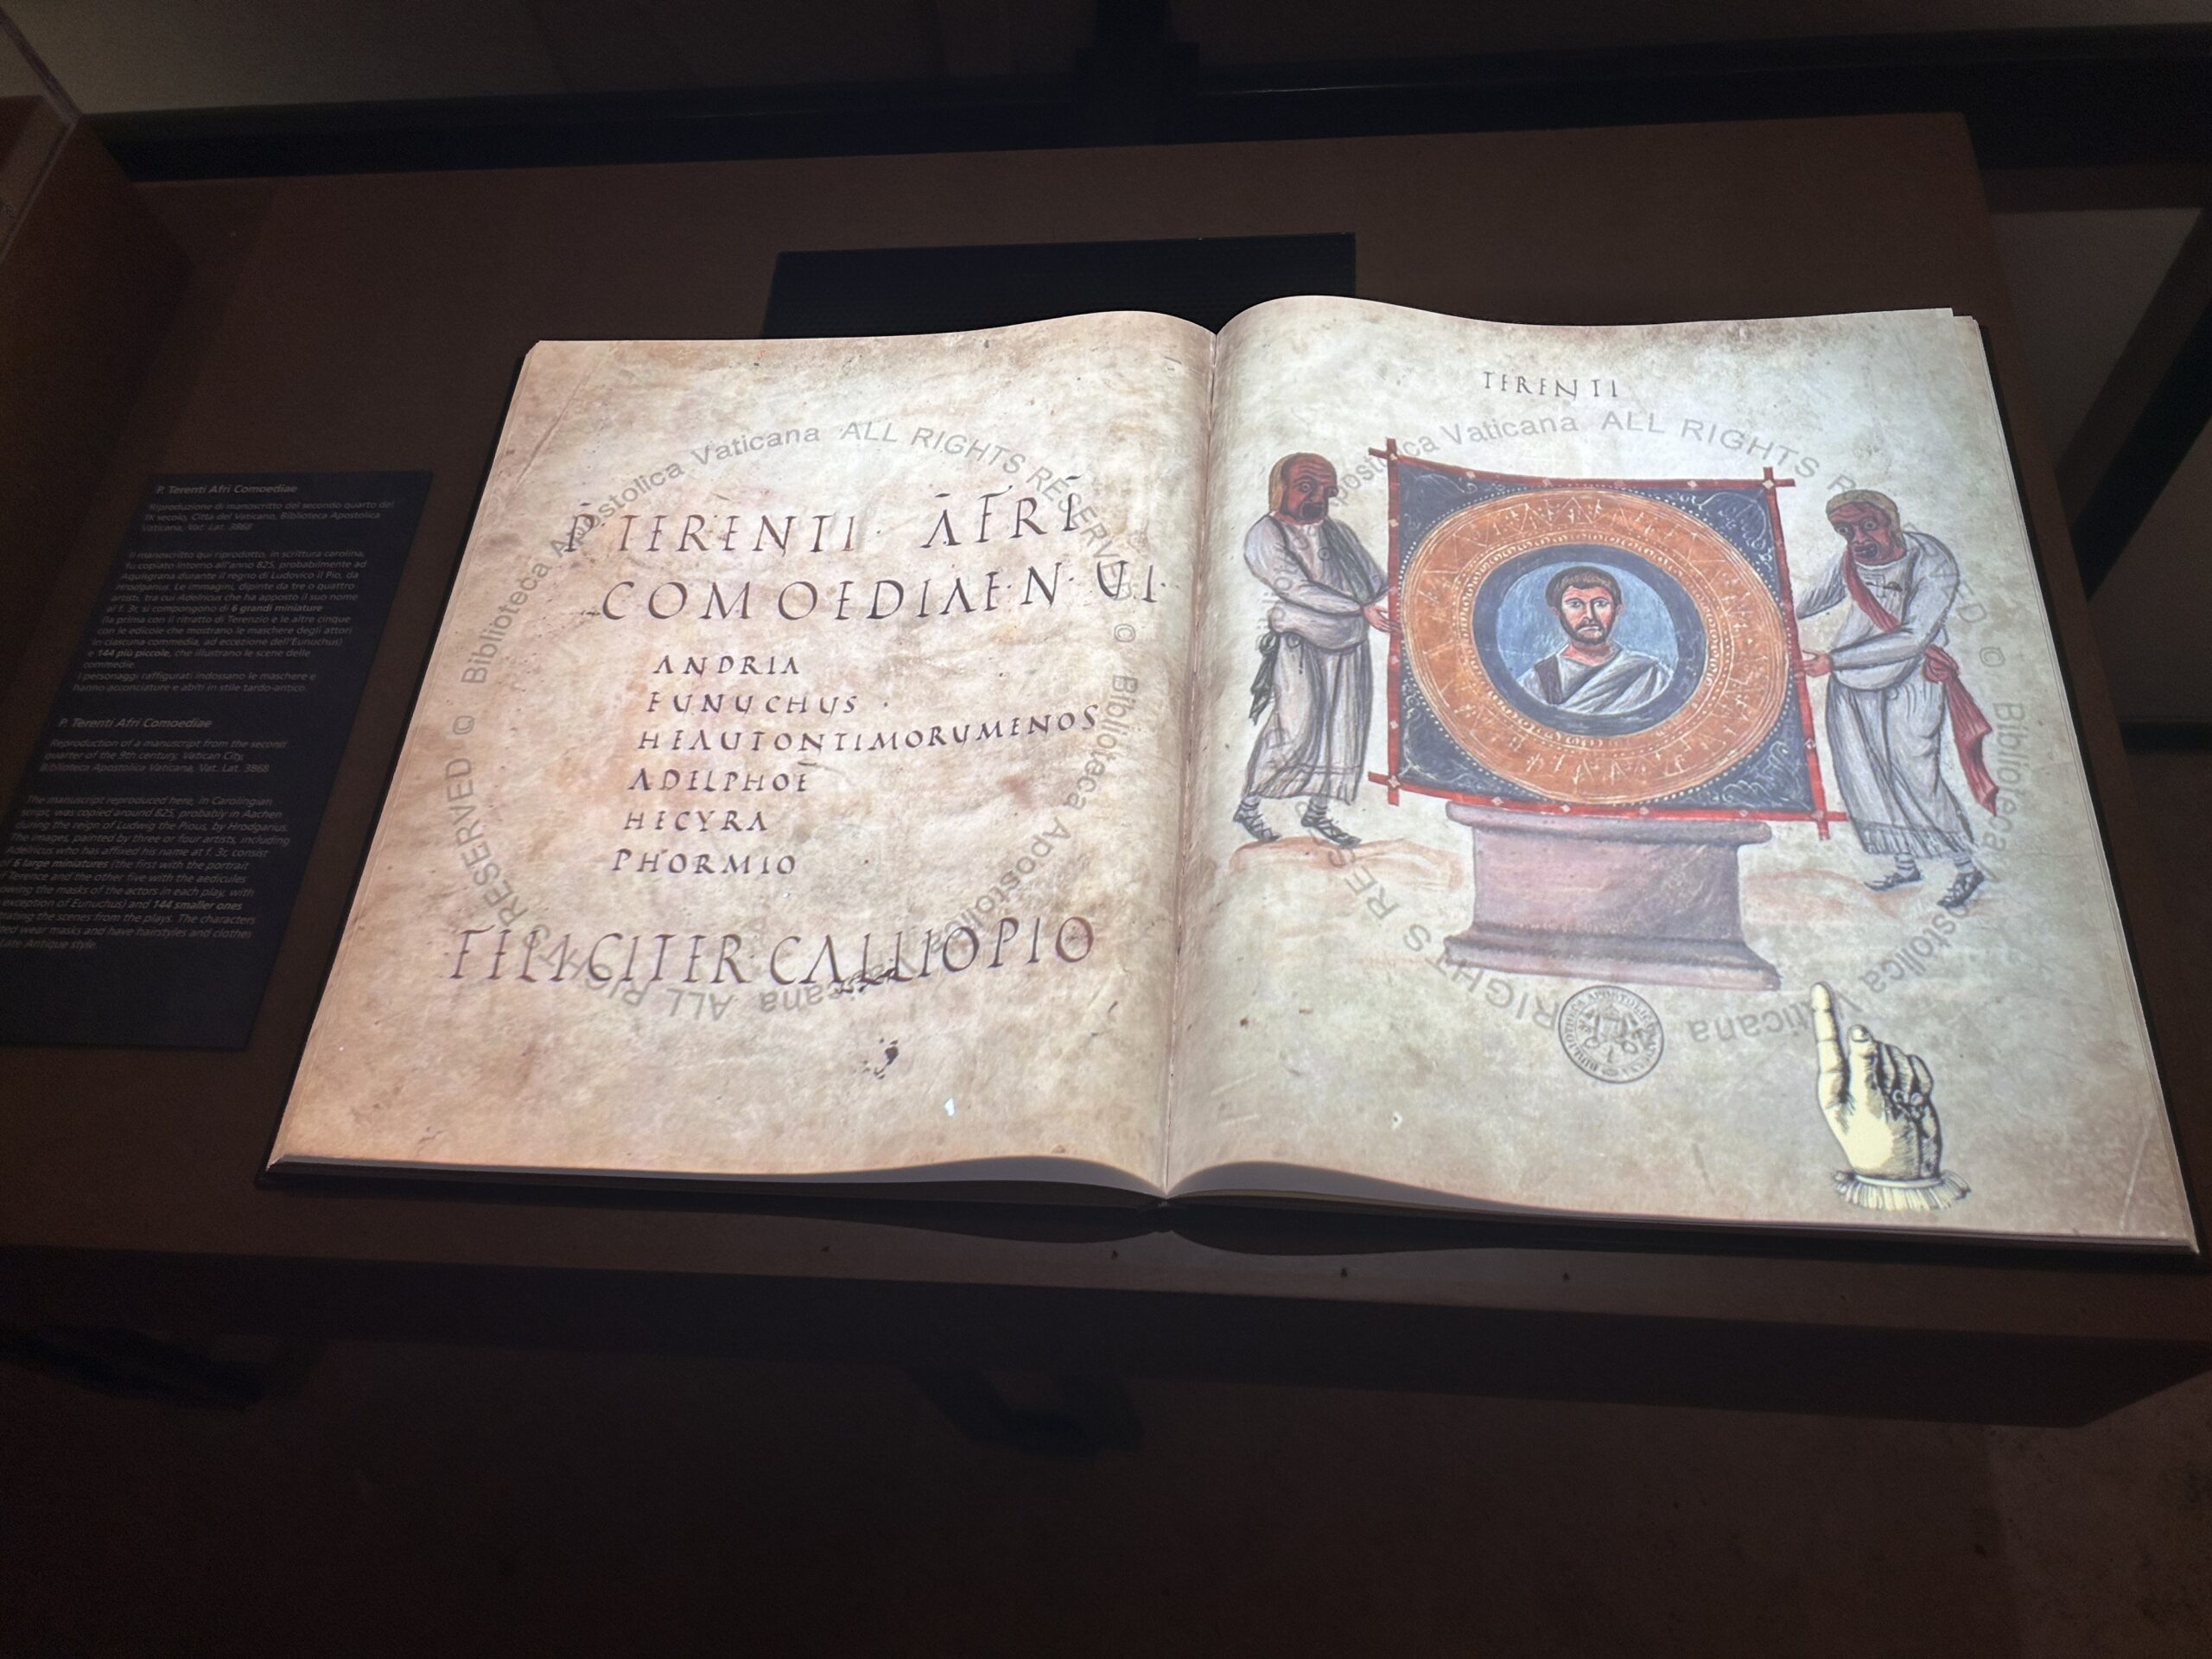 P. Terenti Afri Comoediae
Riproduzione di manoscritto del secondo quarto del
IX secolo, Città del Vaticano, Biblioteca Apostolica
Vaticana, Vat. Lat. 3868
Il manoscritto qui riprodotto, in scrittura carolina,
fu copiato intorno all'anno 825, probabilmente ad
Aquisgrana durante il regno di Ludovico il Pio, da
Hrodgarius. Le immagini, dipinte da tre o quattro
artisti, tra cui Adelricus che ha apposto il suo nome
al f. 3r, si compongono di 6 grandi miniature
(la prima con il ritratto di Terenzio e le altre cinque
con le edicole che mostrano le maschere degli attori
in ciascuna commedia, ad eccezione dell'Eunuchus)
e 144 più piccole, che illustrano le scene delle
commedie.
I personaggi raffigurati indossano le maschere e
hanno acconciature e abiti in stile tardo-antico.
P. Terenti Afri Comoediae
Reproduction of a manuscript from the second
quarter of the 9th century, Vatican City,
Biblioteca Apostolica Vaticana, Vat. Lat. 3868
The manuscript reproduced here, in Carolingian
script, was copied around 825, probably in Aachen
during the reign of Ludwig the Pious, by Hrodgarius.
The images, painted by three or four artists, including
Adelricus who has affixed his name at f. 3r, consist
of 6 large miniatures (the first with the portrait
of Terence and the other five with the aedicules
owing the masks of the actors in each play, with
exception of Eunuchus) and 144 smaller ones
trating the scenes from the plays. The characters
ted wear masks and have hairstyles and clothes
Late Antique style.
P TERENTI · AFRI
COMOEDIAE·N·VI·
ANDRIA
EUNUCHUS
HEAUTONTIMORUMENOS
ADELPHOE
HECYRA
PHORMIO
FELICITER CALLIOPIO
© Biblioteca Apostolica Vaticana ALL RIGHTS RESERVED
© Biblioteca Apostolica Vaticana ALL RIGHTS RESERVED
TERENTI
Apostolica Vaticana ALL RIGHTS RESERVED
© Biblioteca Apostolica Vaticana RIGHTS RES